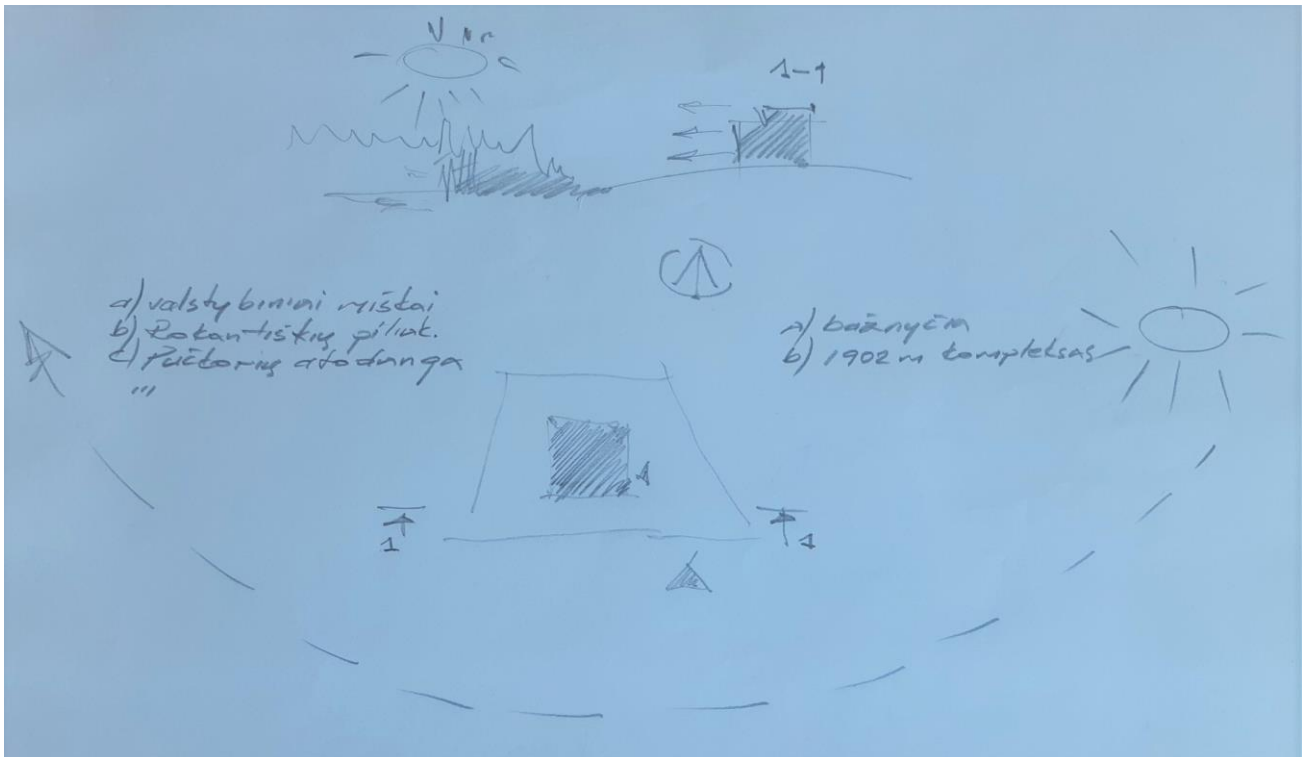 1-1
a) valstybiniai miškai
b) Rokantiškių piliak.
c) Pučkorių atodanga
"'
a) bažnyčia
b) 1902 m kompleksas
1
1